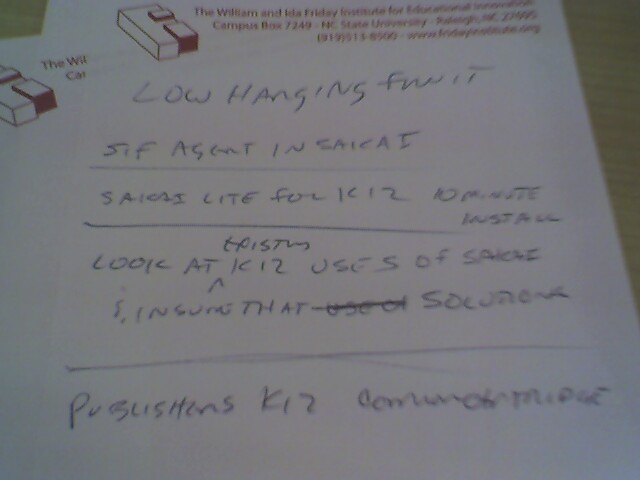 The William and Ida Friday Institute for Educational Innovation
Campus Box 7249 - NC State University - Raleigh, NC 27695
(919)513-8500 - www.fridayinstitute.org
The Wil
Car
LOW HANGING FRUIT
SIF AGENT IN SAKAI
SAKAI LITE FOR K12 10 MINUTE
INSTALL
EXISTING
LOOK AT ^ K12 USES OF SAKAI
& INSURE THAT USE OF SOLUTIONS
PUBLISHERS K12 COMMON CARTRIDGE